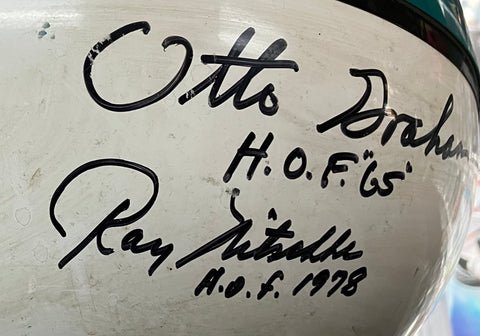 Otto Graham
H.O.F. "65"
Ray Nitschke
H.O.F. 1978